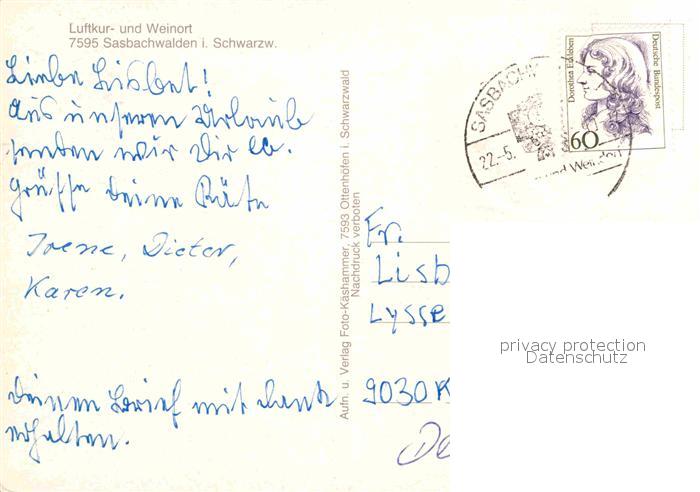 Luftkur- und Weinort
7595 Sasbachwalden i. Schwarzw.
Liebe Lisbet!
Aus unserem Urlaub
senden wir Dir lb.
Grüsse Deine Käte
Irene, Dieter,
Karen.
Deinen Brief mit Dank
erhalten.
Aufn. u. Verlag Foto-Käshammer, 7593 Ottenhöfen i. Schwarzwald
Nachdruck verboten
Dorothea Erxleben
Deutsche Bundespost
60
SASBACHW
22.-5.
und Weinort
Fr.
Lisb
Lysse
9030 K
De
privacy protection
Datenschutz